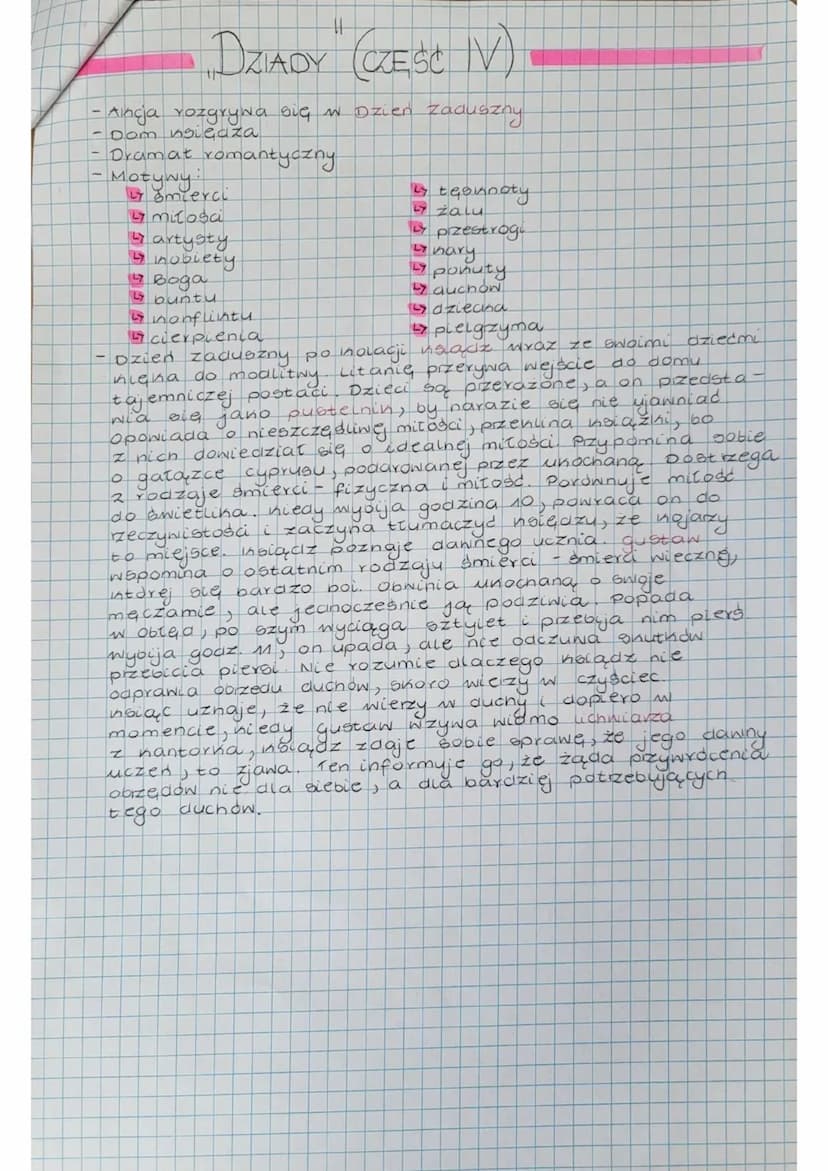 „DZIADY” (CZĘŚĆ IV)
- Akcja rozgrywa się w Dzień Zaduszny
- Dom księdza
- Dramat romantyczny
- Motywy:
↳ śmierci
↳ miłości
↳ artysty
↳ kobiety
↳ Boga
↳ buntu
↳ konfliktu
↳ cierpienia
↳ tęsknoty
↳ żalu
↳ przestrogi
↳ kary
↳ pokuty
↳ duchów
↳ dziecka
↳ pielgrzyma
- Dzień zaduszny po kolacji ksiądz wraz ze swoimi dziećmi
klęka do modlitwy. Litanię przerywa wejście do domu
tajemniczej postaci. Dzieci są przerażone, a on przedsta-
wia się jako pustelnik, by narazie się nie ujawniać
Opowiada o nieszczęśliwej miłości, przeklina książki, bo
z nich dowiedział się o idealnej miłości. Przypomina sobie
o gałązce cyprysu, podarowanej przez ukochaną. Dostrzega
2 rodzaje śmierci - fizyczna i miłość. Porównuje miłość
do świetlika. Kiedy wybija godzina 10, powraca on do
rzeczywistości i zaczyna tłumaczyć księdzu, że kojarzy
to miejsce. Ksiądz poznaje dawnego ucznia. Gustaw
wspomina o ostatnim rodzaju śmierci - śmierci wiecznej,
której się bardzo boi. Obwinia ukochaną o swoje
męczarnie, ale jednocześnie ją podziwia. Popada
w obłęd, po szym wyciąga sztylet i przebija nim pierś
wybija godz. 11, on upada, ale nie odczuwa skutków
przebicia piersi. Nie rozumie dlaczego ksiądz nie
odprawia obrzędu duchów, skoro wierzy w czyściec.
Ksiąc uznaje, że nie wierzy w duchy i dopiero w
momencie, kiedy Gustaw wzywa widmo lichwiarza
z kantorka, ksiądz zdaje sobie sprawę, że jego dawny
uczeń, to zjawa. Ten informuje go, że żąda przywrócenia
obrzędów nie dla siebie, a dla bardziej potrzebujących
tego duchów.